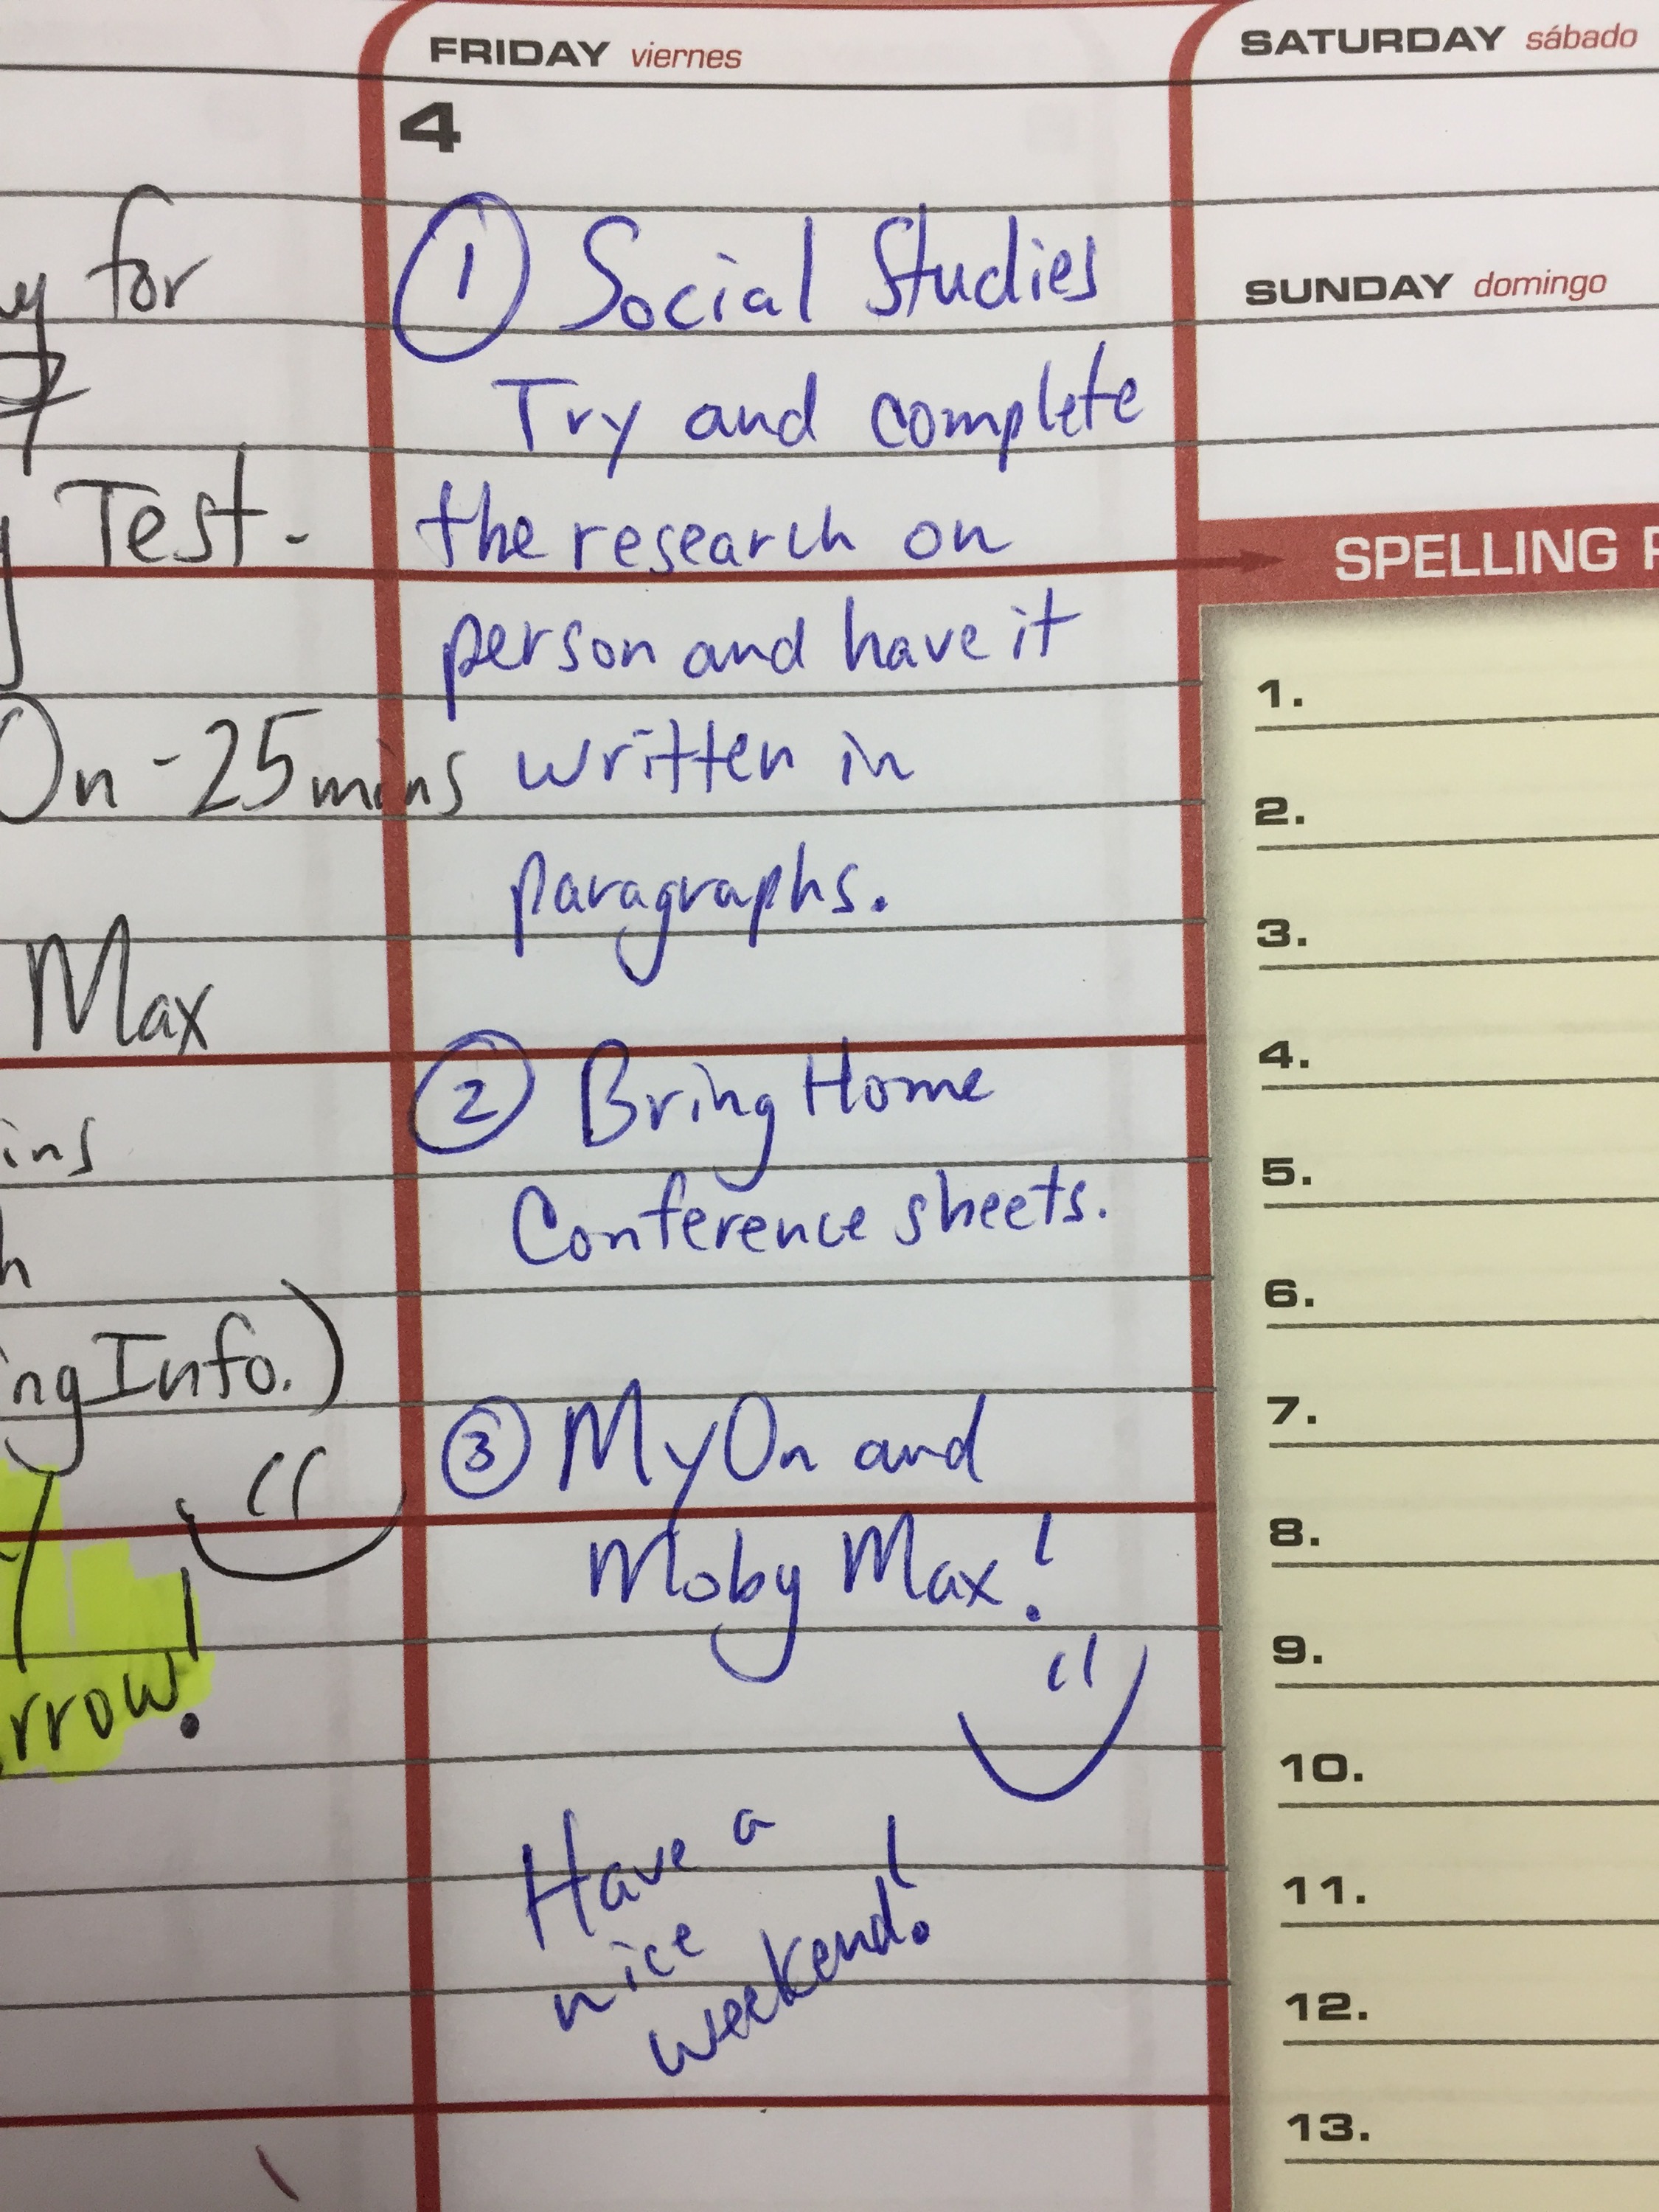 FRIDAY viernes
4
① Social Studies
Try and complete
the research on
person and have it
written in
paragraphs.
② Bring Home
Conference sheets.
③ MyOn and
Moby Max!
Have a
nice
weekend!
for
Test.
On - 25 mins
Max
ins
ng Info.)
rrow!
SATURDAY sábado
SUNDAY domingo
SPELLING
1.
2.
3.
4.
5.
6.
7.
8.
9.
10.
11.
12.
13.